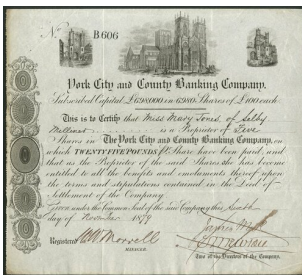 No. B606
York City and County Banking Company.
Subscribed Capital £ in Shares of £100 each.
This is to Certify that Miss Mary Jones of Selby
is a Proprietor of Five
Shares in The York City and County Banking Company, on
which TWENTY FIVE POUNDS per Share have been paid, and
that as the Proprietor of the said Shares she has become
entitled to all the benefits and emoluments thereof upon
the terms and stipulations contained in the Deed of
Settlement of the Company.
Given under the Common Seal of the said Company this
day of November 1879
Registered
MANAGER.
Two of the Directors of the Company.